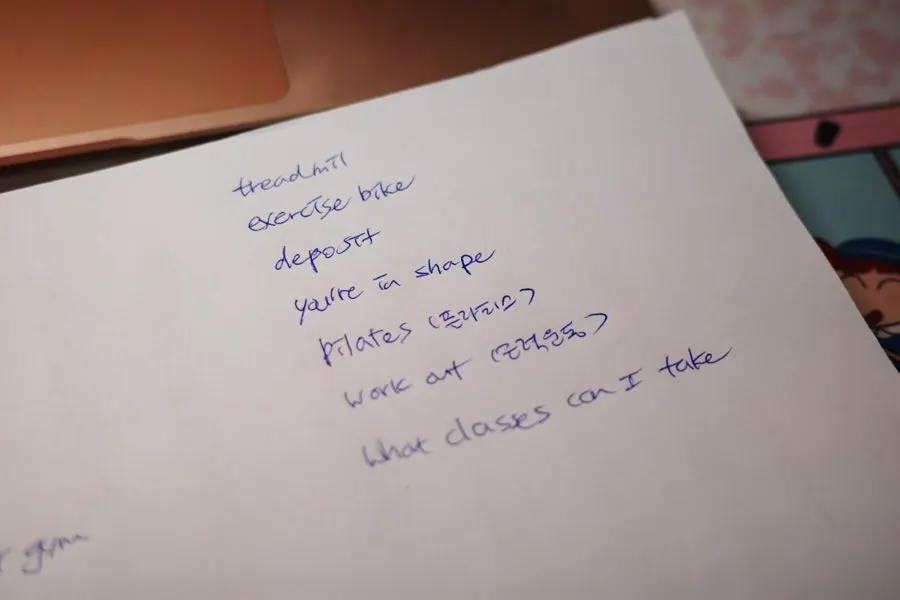 treadmil
exercise bike
deposit
you're in shape
pilates (플라티스)
work out (근력운동)
What classes can I take
gym